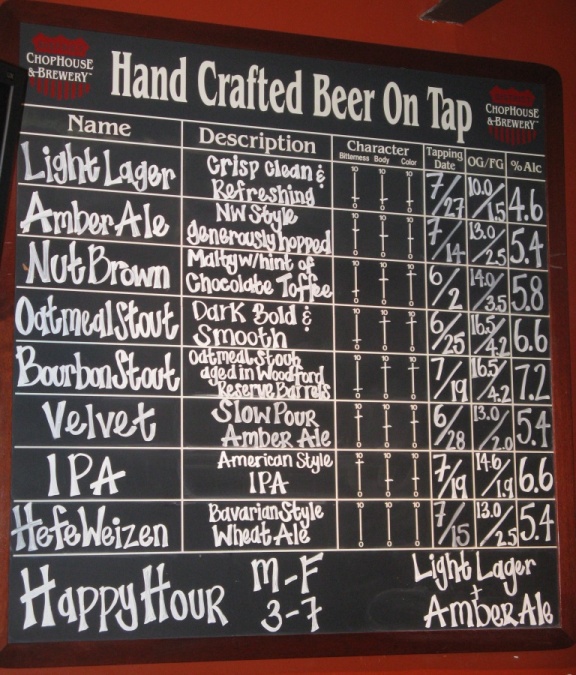 ChopHouse & Brewery™
Hand Crafted Beer On Tap
ChopHouse & Brewery™
Name Description Character Bitterness Body Color Tapping Date OG/FG % Alc
Light Lager Crisp Clean & Refreshing 10 10 10 0 0 0 7/27 10.0/1.5 4.6
Amber Ale NW Style generously hopped 10 10 10 0 0 0 7/14 13.0/2.5 5.4
Nut Brown Malty w/hint of Chocolate Toffee 10 10 10 0 0 0 6/2 14.0/3.5 5.8
Oatmeal Stout Dark Bold & Smooth 10 10 10 0 0 0 6/25 16.5/4.2 6.6
Bourbon Stout Oatmeal Stout aged in Woodford Reserve Barrels 10 10 10 0 0 0 7/19 16.5/4.2 7.2
Velvet Slow Pour Amber Ale 10 10 10 0 0 0 6/28 13.0/2.0 5.4
IPA American Style IPA 10 10 10 0 0 0 7/19 14.6/1.9 6.6
HefeWeizen Bavarian Style Wheat Ale 10 10 10 0 0 0 7/15 13.0/2.5 5.4
Happy Hour M-F 3-7 Light Lager + Amber Ale